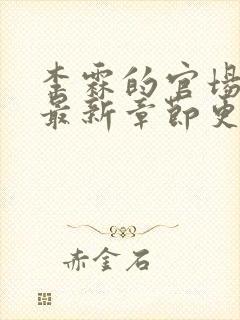 李霖的官场
最新章节更
赤金石